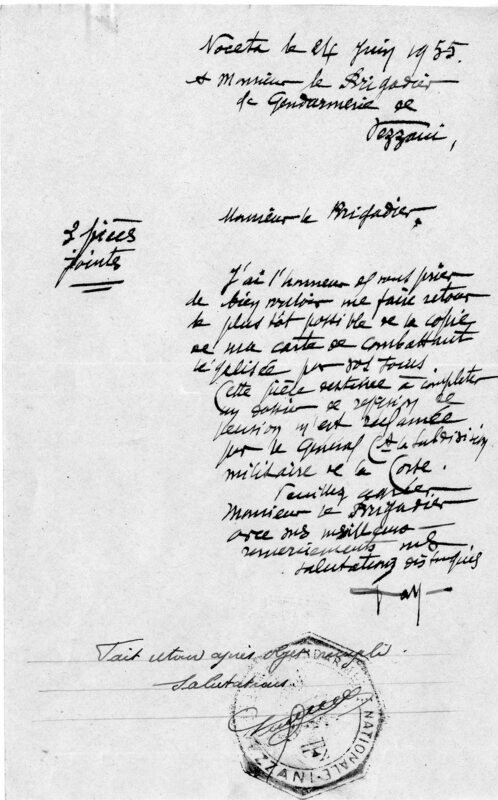 Noceta le 24 Juin 1955.
A Monsieur le Brigadier
de Gendarmerie de
Vezzani,
Monsieur le Brigadier,
3 pièces
jointes
J'ai l'honneur de vous prier
de bien vouloir me faire retour
le plus tôt possible de la copie
de ma carte de combattant
légalisée par vos soins.
Cette pièce destinée à compléter
un dossier de révision de
pension m'est réclamée
par le Général Ct la Subdivision
militaire de la Corse.
Veuillez agréer
Monsieur le Brigadier
avec mes meilleurs
remerciements mes
salutations distinguées
Fait retour après objet rempli.
Salutations.
NATIONALE
ZZANI